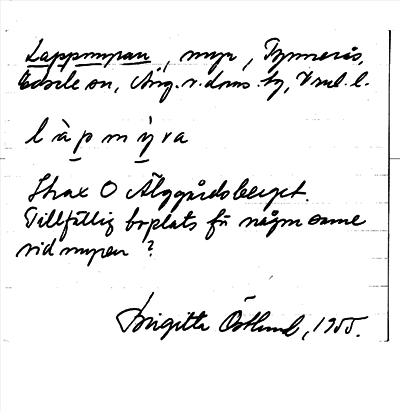 Lappmyran, myr, Tynnerås,
Edsele sn, Ång. v. doms. tg, Vnl. l.
l à p m ỳ r a
Strax O Älggårdsberget.
Tillfällig boplats för någon same
vid myren?
Birgitta Östlund, 1955.